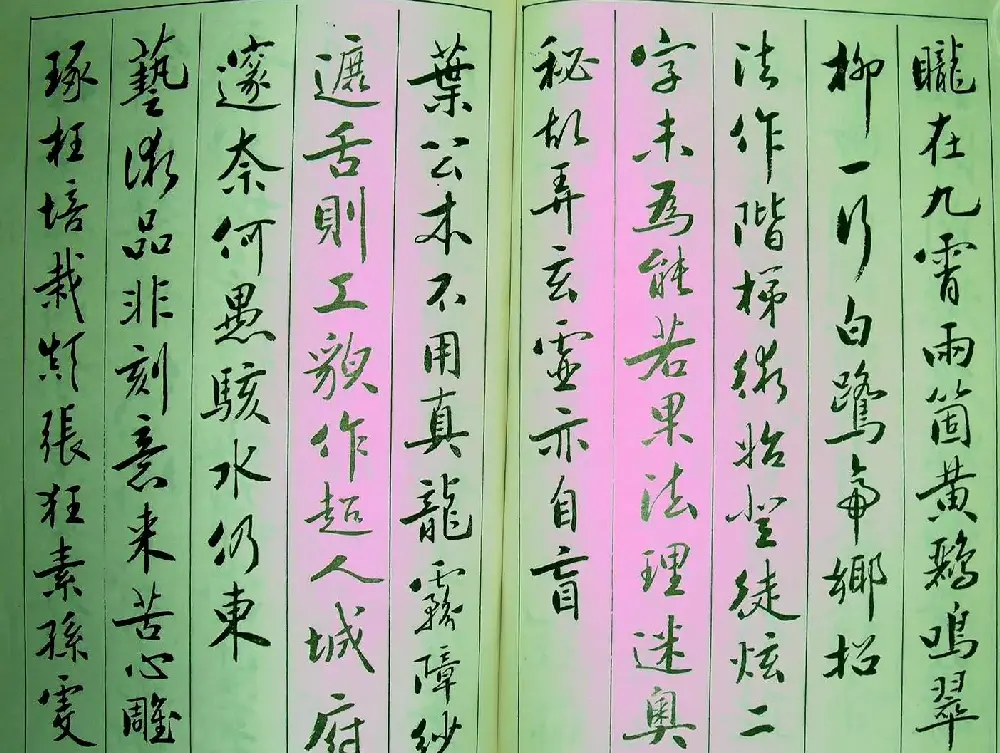 朧在九霄兩箇黄鸝鳴翠
柳一行白鷺帝鄉招
法作階梯術始登徒炫二
字未為能若果法理迷奧
秘故弄玄靈亦自盲
葉公本不用真龍霧障紗
遮舌則工貌作超人城府
邃奈何愚駭水仍東
藝術品非刻意来苦心雕
琢枉培栽顛張狂素孫虔